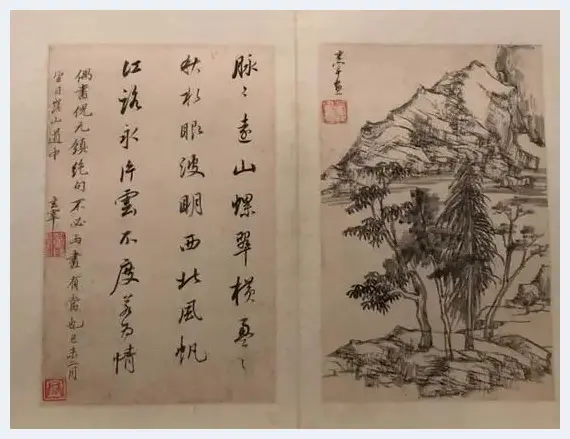 玄宰畫
脉〻遠山螺翠橫盈〻
秋水眼波明西北風帆
江路永片雲不度若為情
偶書倪元鎮絶句不必与畫有當也己未二月
望日崑山道中
玄宰